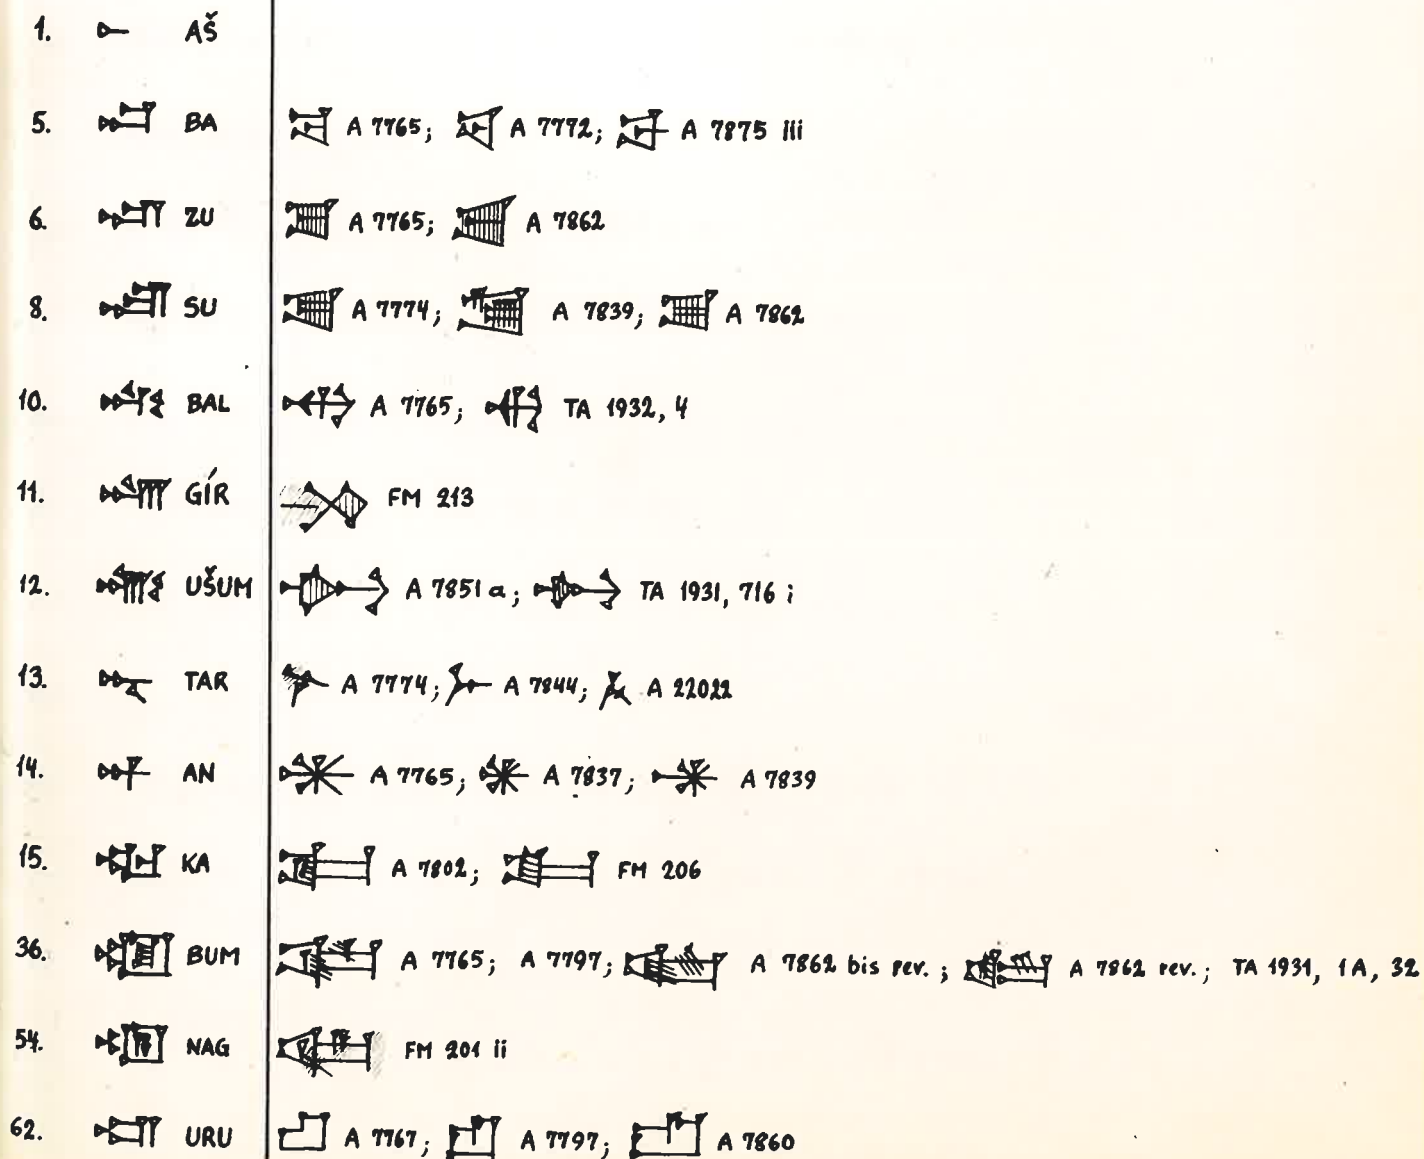 1. AŠ
5. BA A 7765; A 7772; A 7875 iii
6. ZU A 7765; A 7862
8. SU A 7774; A 7839; A 7862
10. BAL A 7765; TA 1932, 4
11. GÍR FM 213
12. UŠUM A 7851 a; TA 1931, 716 i
13. TAR A 7774; A 7844; A 22022
14. AN A 7765; A 7837; A 7839
15. KA A 7802; FM 206
36. BUM A 7765; A 7797; A 7862 bis rev.; A 7862 rev.; TA 1931, 1A, 32
54. NAG FM 201 ii
62. URU A 7767; A 7797; A 7860